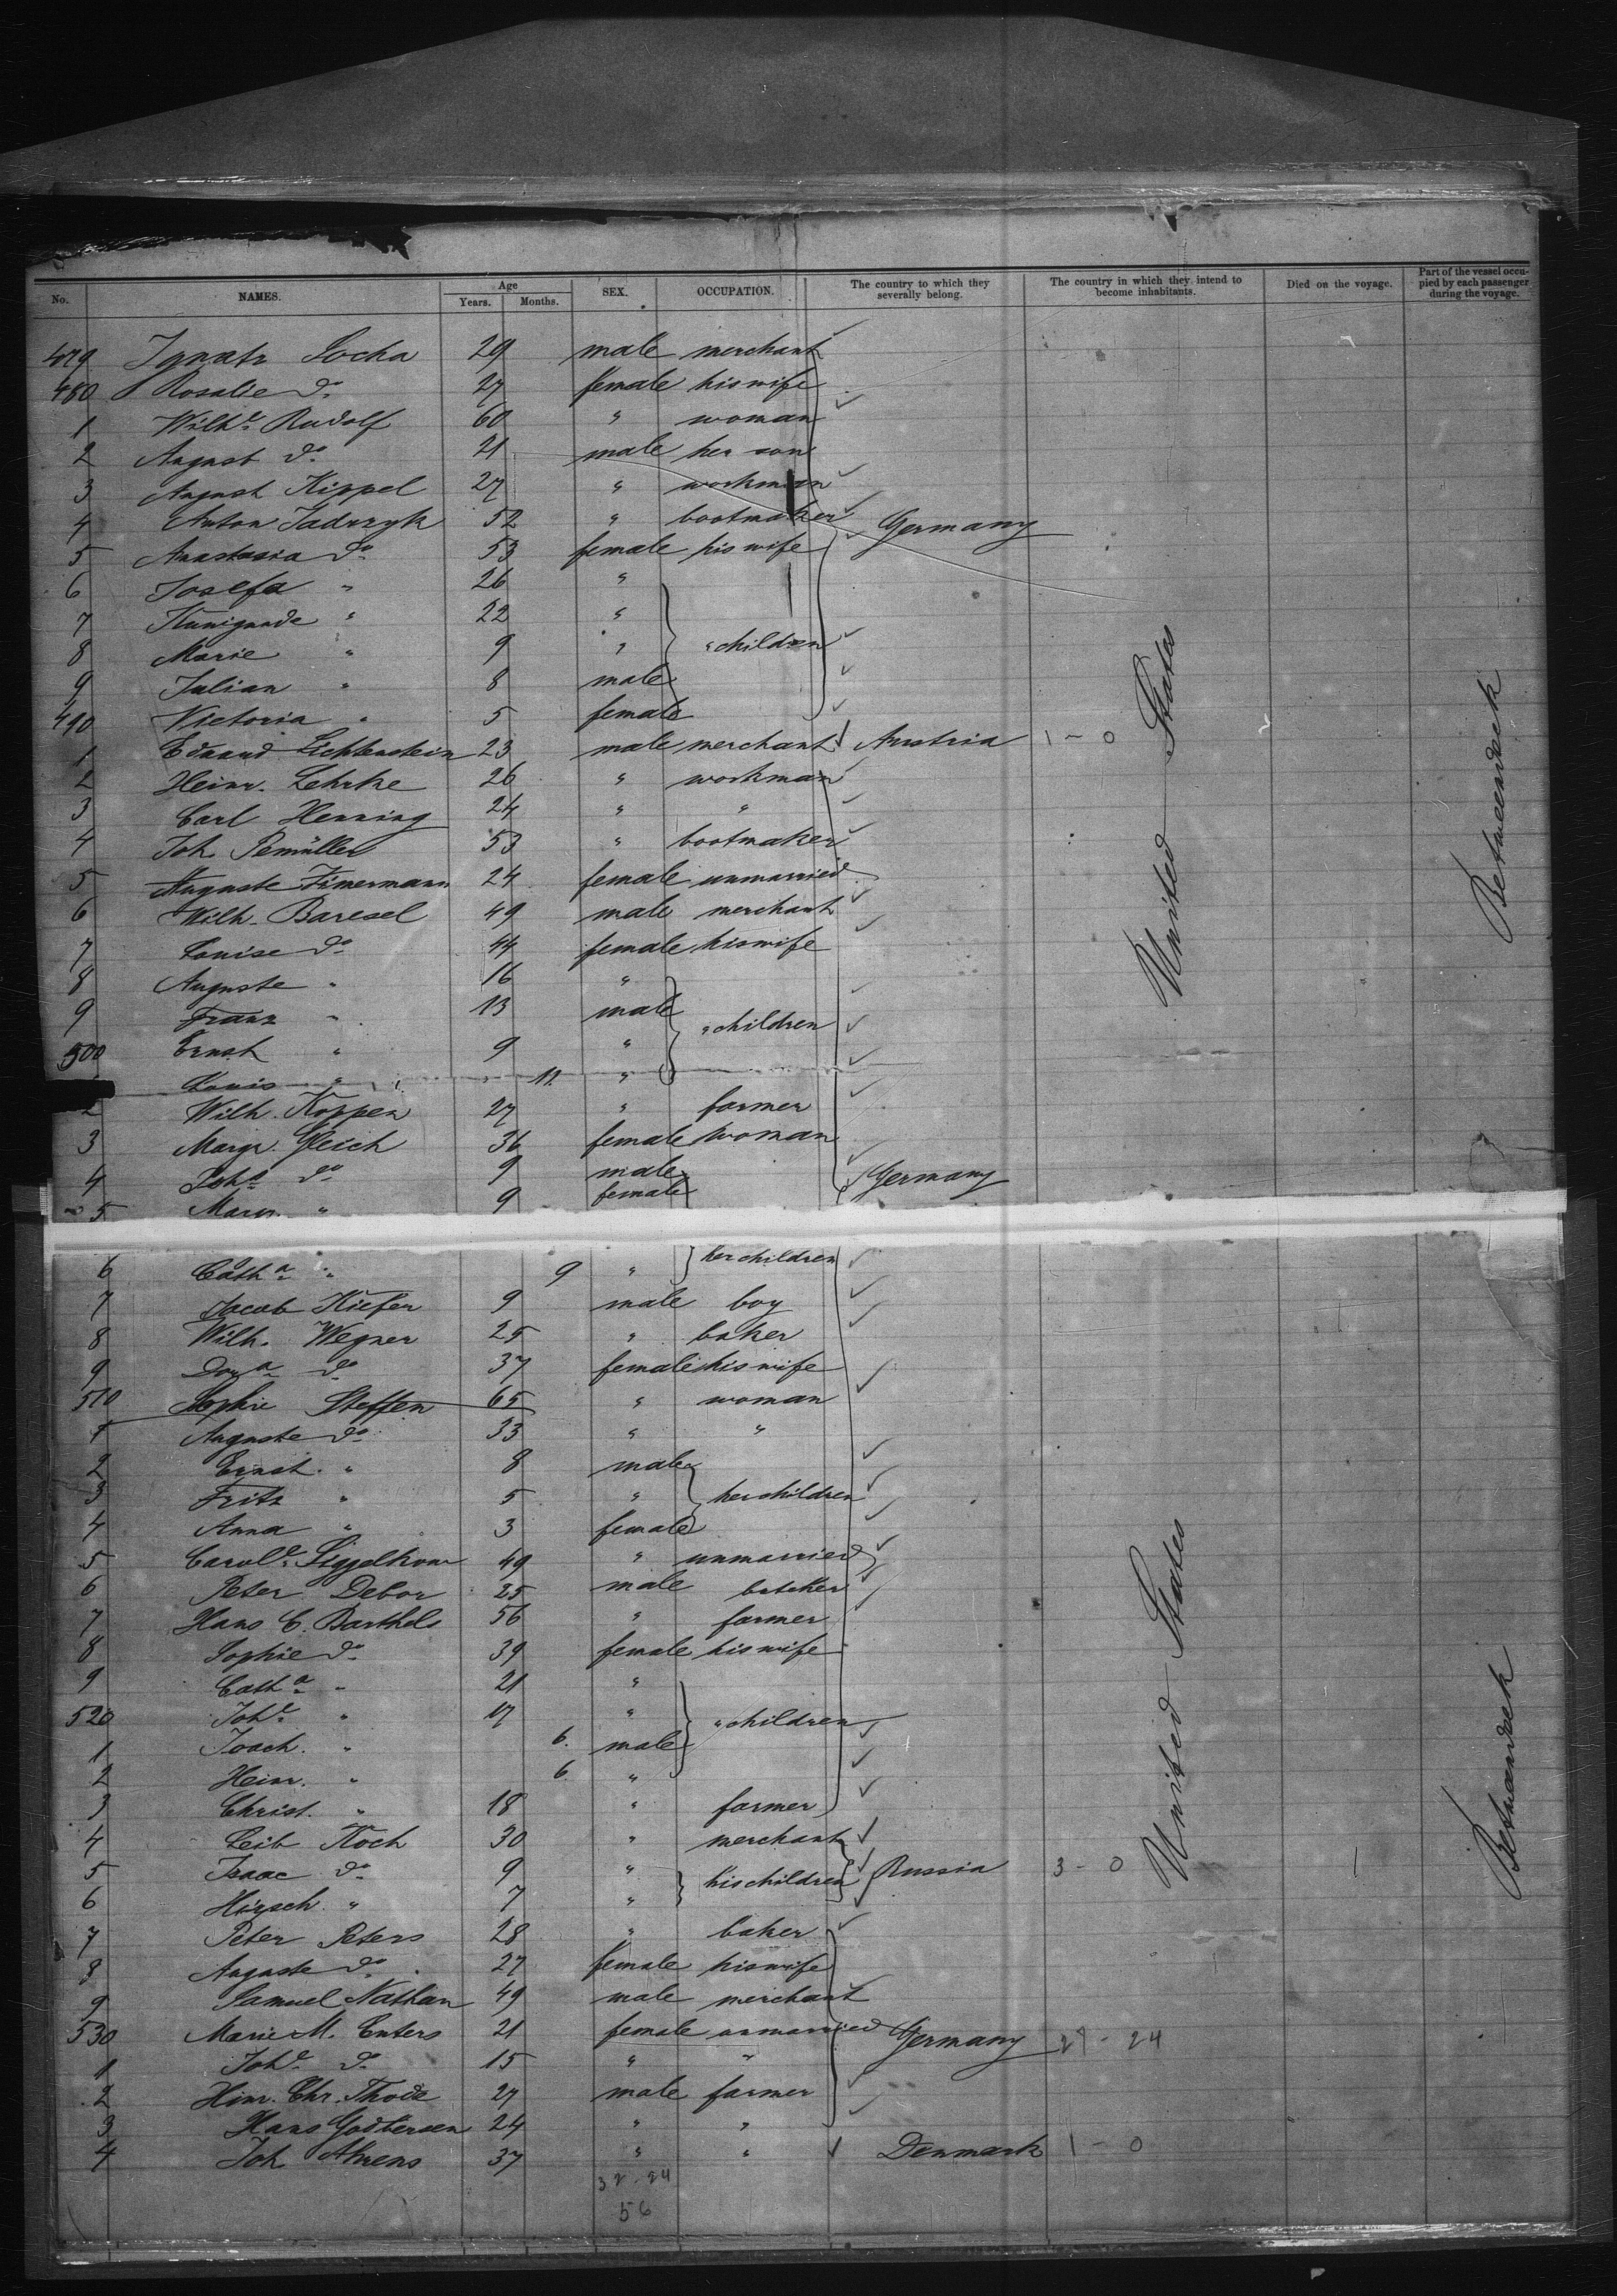 No. NAMES. Age Years. Months. SEX. OCCUPATION. The country to which they severally belong. The country in which they intend to become inhabitants. Died on the voyage. Part of the vessel occupied by each passenger during the voyage.
479 Ignatz Socha 29 male merchant
480 Rosalie do 27 female his wife
1 Wilhe Rudolf 60 " woman
2 August do 21 male her son
3 August Kippel 27 " workman
4 Anton 52 " bootmaker Germany
5 Anastasia do 53 female his wife
6 Josefa " 26 "
7 Kunigunde " 22 "
8 Marie " 9 " " children
9 Julian " 8 male
490 Victoria " 5 female
1 Eduard Lichtenstein 23 male merchant Austria 1 - 0
2 Heinr. Lehrke 26 " workman
3 Carl Henning 24 " "
4 Joh Pemüller 53 " bootmaker
5 Auguste Zimermann 24 female unmarried
6 Wilh. Baresel 49 male merchant
7 Louise do 44 female his wife
8 Auguste " 16 "
9 Franz " 13 male " children
500 Ernst " 9 "
Louis " 11. "
2 Wilh. Koppen 27 " farmer
3 Margr. Gleich 36 female woman
4 Joha do 9 male Germany
5 Margr. " 9 female
United States
Betweendeck
6 Catha " 9 " her children
7 Jacob Kiefer 9 male boy
8 Wilh. Wegner 25 " baker
9 Dora do 37 female his wife
510 Sophie Steffen 65 " woman
1 Auguste do 33 " "
2 Ernst. " 8 male
3 Fritz " 5 " her children
4 Anna " 3 female
5 Carole Siggelkow 49 " unmarried
6 Peter Debor 25 male butcher
7 Hans C. Barthels 56 " farmer
8 Sophie do 39 female his wife
9 Catha " 21 "
520 Johe " 17 " " children
1 Joach. " 6. male
2 Heinr. " 6. "
3 Christ. " 18 " farmer
4 Leib Koch 30 " merchant
5 Isaac do 9 " his children Russia 3 - 0 1
6 Hirsch. " 7 "
7 Peter Peters 28 " baker
8 Auguste do 27 female his wife
9 Samuel Nathan 49 male merchant
530 Marie M. Enters 21 female unmarried Germany 27 - 24
1 Johe do 15 " "
2 Hinr. Chr. Thode 27 male farmer
3 Hans Godbersen 24 " "
4 Joh Ahrens 37 " " Denmark 1 - 0
32 - 24
56
United States
Betweendeck